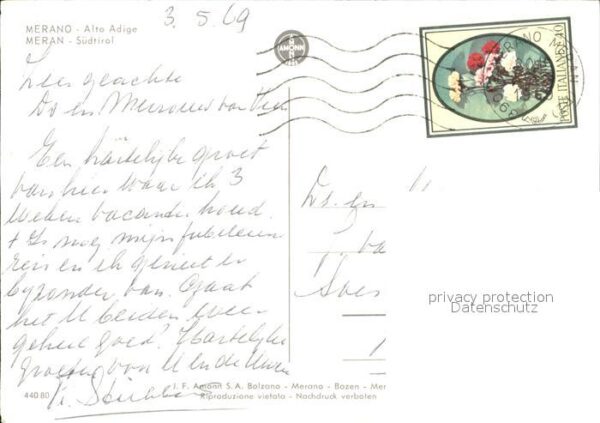 3.5.69
MERANO - Alto Adige
MERAN - Südtirol
AMONN
POSTE ITALIANE
Zeer geachte
Ds en Mevrouw van
Een hartelijke groet
van hier waar ik 3
weken vacantie houd.
+ Is nog mijn jubileum
reis en ik geniet er
byzonder van. Gaat
het U beiden weer
geheel goed? Hartelijke
groeten van
Ds. en
privacy protection
Datenschutz
J. F. Amonn S.A. Bolzano - Merano - Bozen - Mer
Riproduzione vietata - Nachdruck verboten
440 80